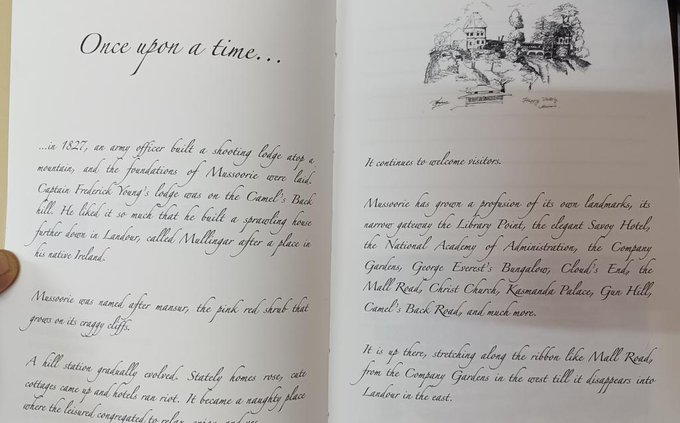 Once upon a time...
...in 1827, an army officer built a shooting lodge atop a
mountain, and the foundations of Mussoorie were laid.
Captain Frederick Young's lodge was on the Camel's Back
hill. He liked it so much that he built a sprawling house
further down in Landour, called Mullingar after a place in
his native Ireland.
Mussoorie was named after mansur, the pink red shrub that
grows on its craggy cliffs.
A hill station gradually evolved. Stately homes rose, cute
cottages came up and hotels ran riot. It became a naughty place
where the leisured congregated to relax, enjoy, and
It continues to welcome visitors.
Mussoorie has grown a profusion of its own landmarks, its
narrow gateway the Library Point, the elegant Savoy Hotel,
the National Academy of Administration, the Company
Gardens, George Everest's Bungalow, Cloud's End, the
Mall Road, Christ Church, Kasmanda Palace, Gun Hill,
Camel's Back Road, and much more.
It is up there, stretching along the ribbon like Mall Road,
from the Company Gardens in the west till it disappears into
Landour in the east.